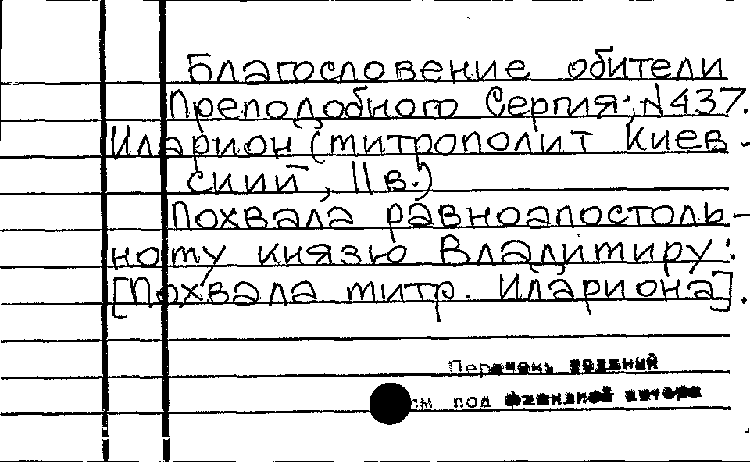 Благословение обители
Преподобного Сергия; N437.
Иларион (митрополит Киев-
ский, 11 в.)
Похвала равноапостоль-
ному князю Владимиру:
[Похвала митр. Илариона].
Перечень изданий
см под фамилией автора